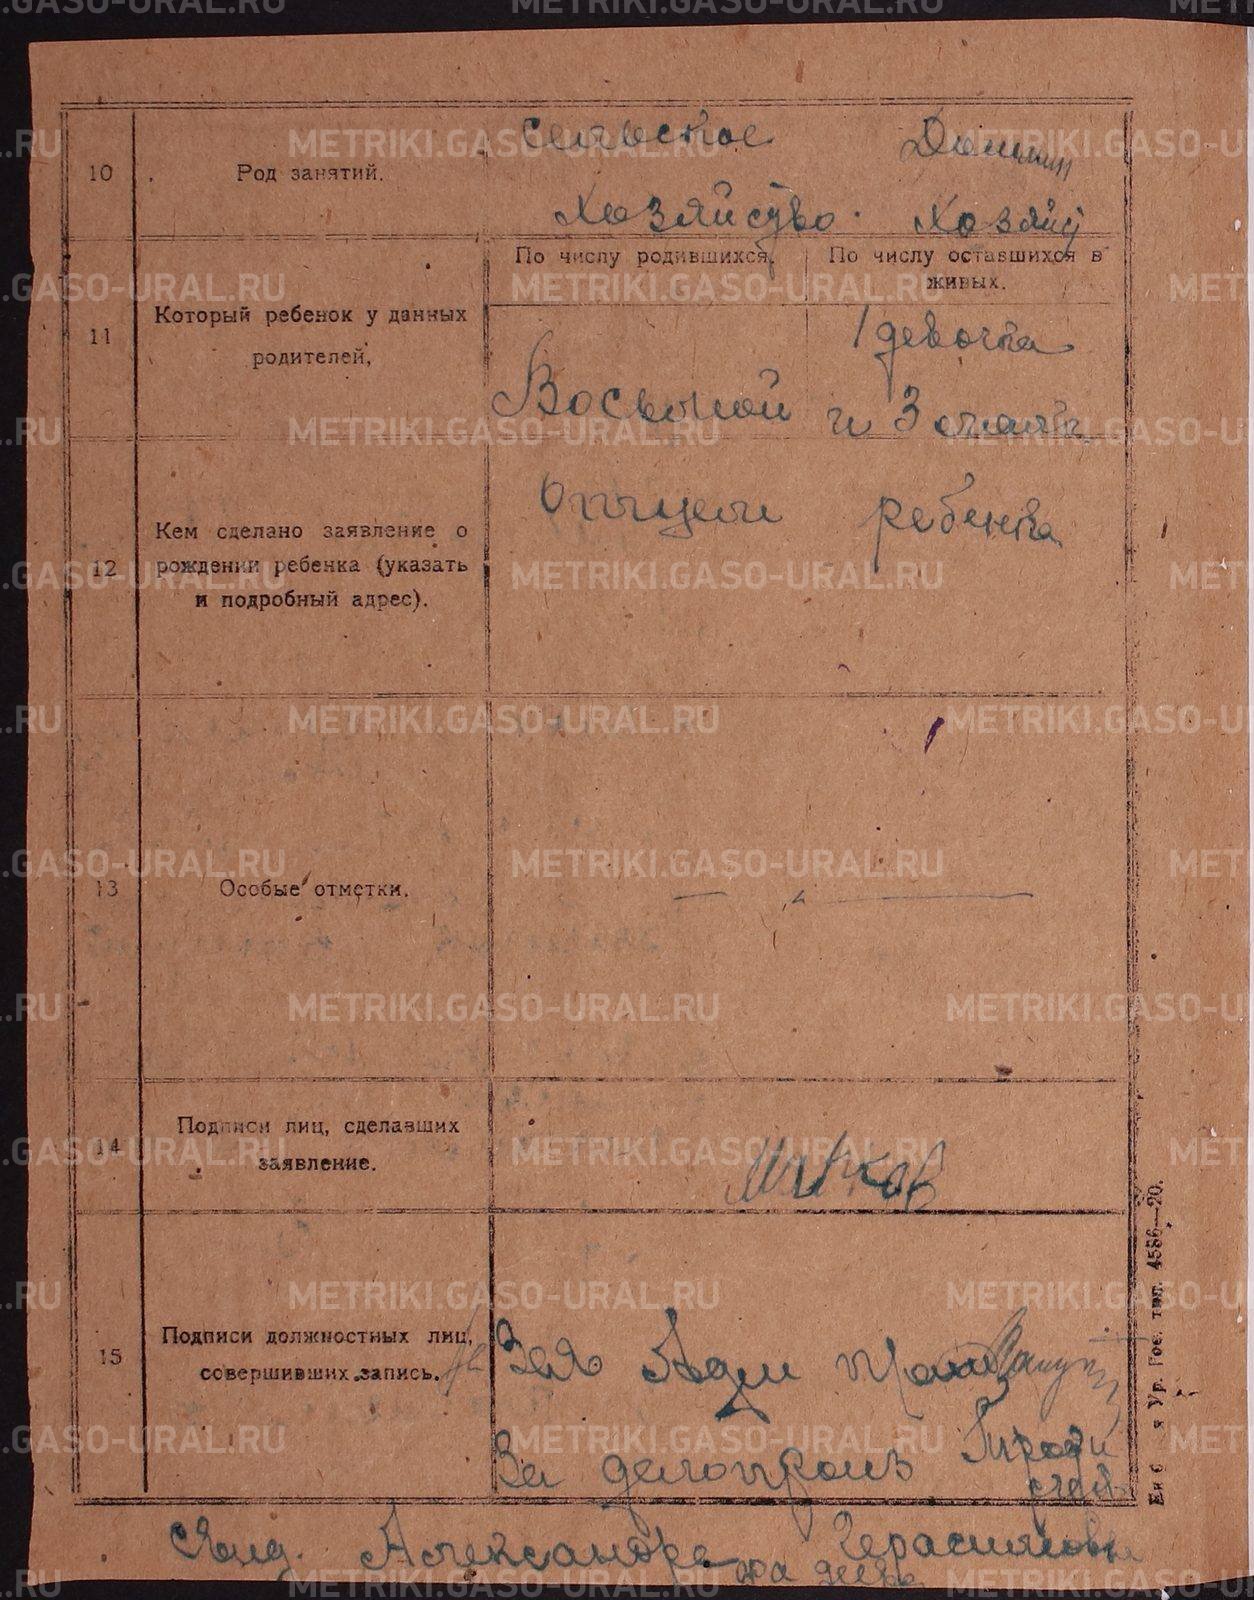 10
Род занятий.
сельское
хозяйство.
Домашн
хозяйс
11
Который ребенок у данных
родителей,
По числу родившихся,
По числу оставшихся в
живых.
Восьмой
1 девочка
и 3
12
Кем сделано заявление о
рождении ребенка (указать
и подробный адрес).
отцем ребенка
13
Особые отметки.
14
Подписи лиц, сделавших
заявление.
15
Подписи должностных лиц,
совершивших запись.
Зав
За делопроиз
Александра Герасимовы
Екб я Ур. Гос. тип. 4586—20.
METRIKI.GASO-URAL.RU